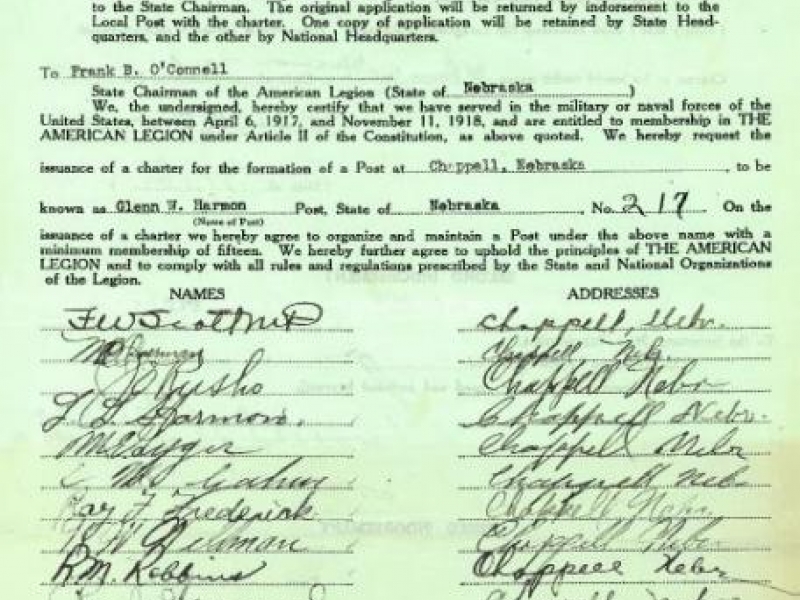 to the State Chairman. The original application will be returned by indorsement to the
Local Post with the charter. One copy of application will be retained by State Head-
quarters, and the other by National Headquarters.
To Frank B. O'Connell
State Chairman of the American Legion (State of Nebraska )
We, the undersigned, hereby certify that we have served in the military or naval forces of the
United States, between April 6, 1917, and November 11, 1918, and are entitled to membership in THE
AMERICAN LEGION under Article II of the Constitution, as above quoted. We hereby request the
issuance of a charter for the formation of a Post at Chappell, Nebraska , to be
known as Glenn W. Harmon Post, State of Nebraska , No. 217 On the
(Name of Post)
issuance of a charter we hereby agree to organize and maintain a Post under the above name with a
minimum membership of fifteen. We hereby further agree to uphold the principles of THE AMERICAN
LEGION and to comply with all rules and regulations prescribed by the State and National Organizations
of the Legion.
NAMES ADDRESSES
FW Scott MD Chappell, Nebr.
Chappell, Nebr.
Chappell Nebr
L L Harmon. Chappell Nebr.
Chappell Nebr
Chappell Neb
Ray F. Frederick Chappell Nebr.
Chappell Nebr
R.M. Robbins Chappell Nebr